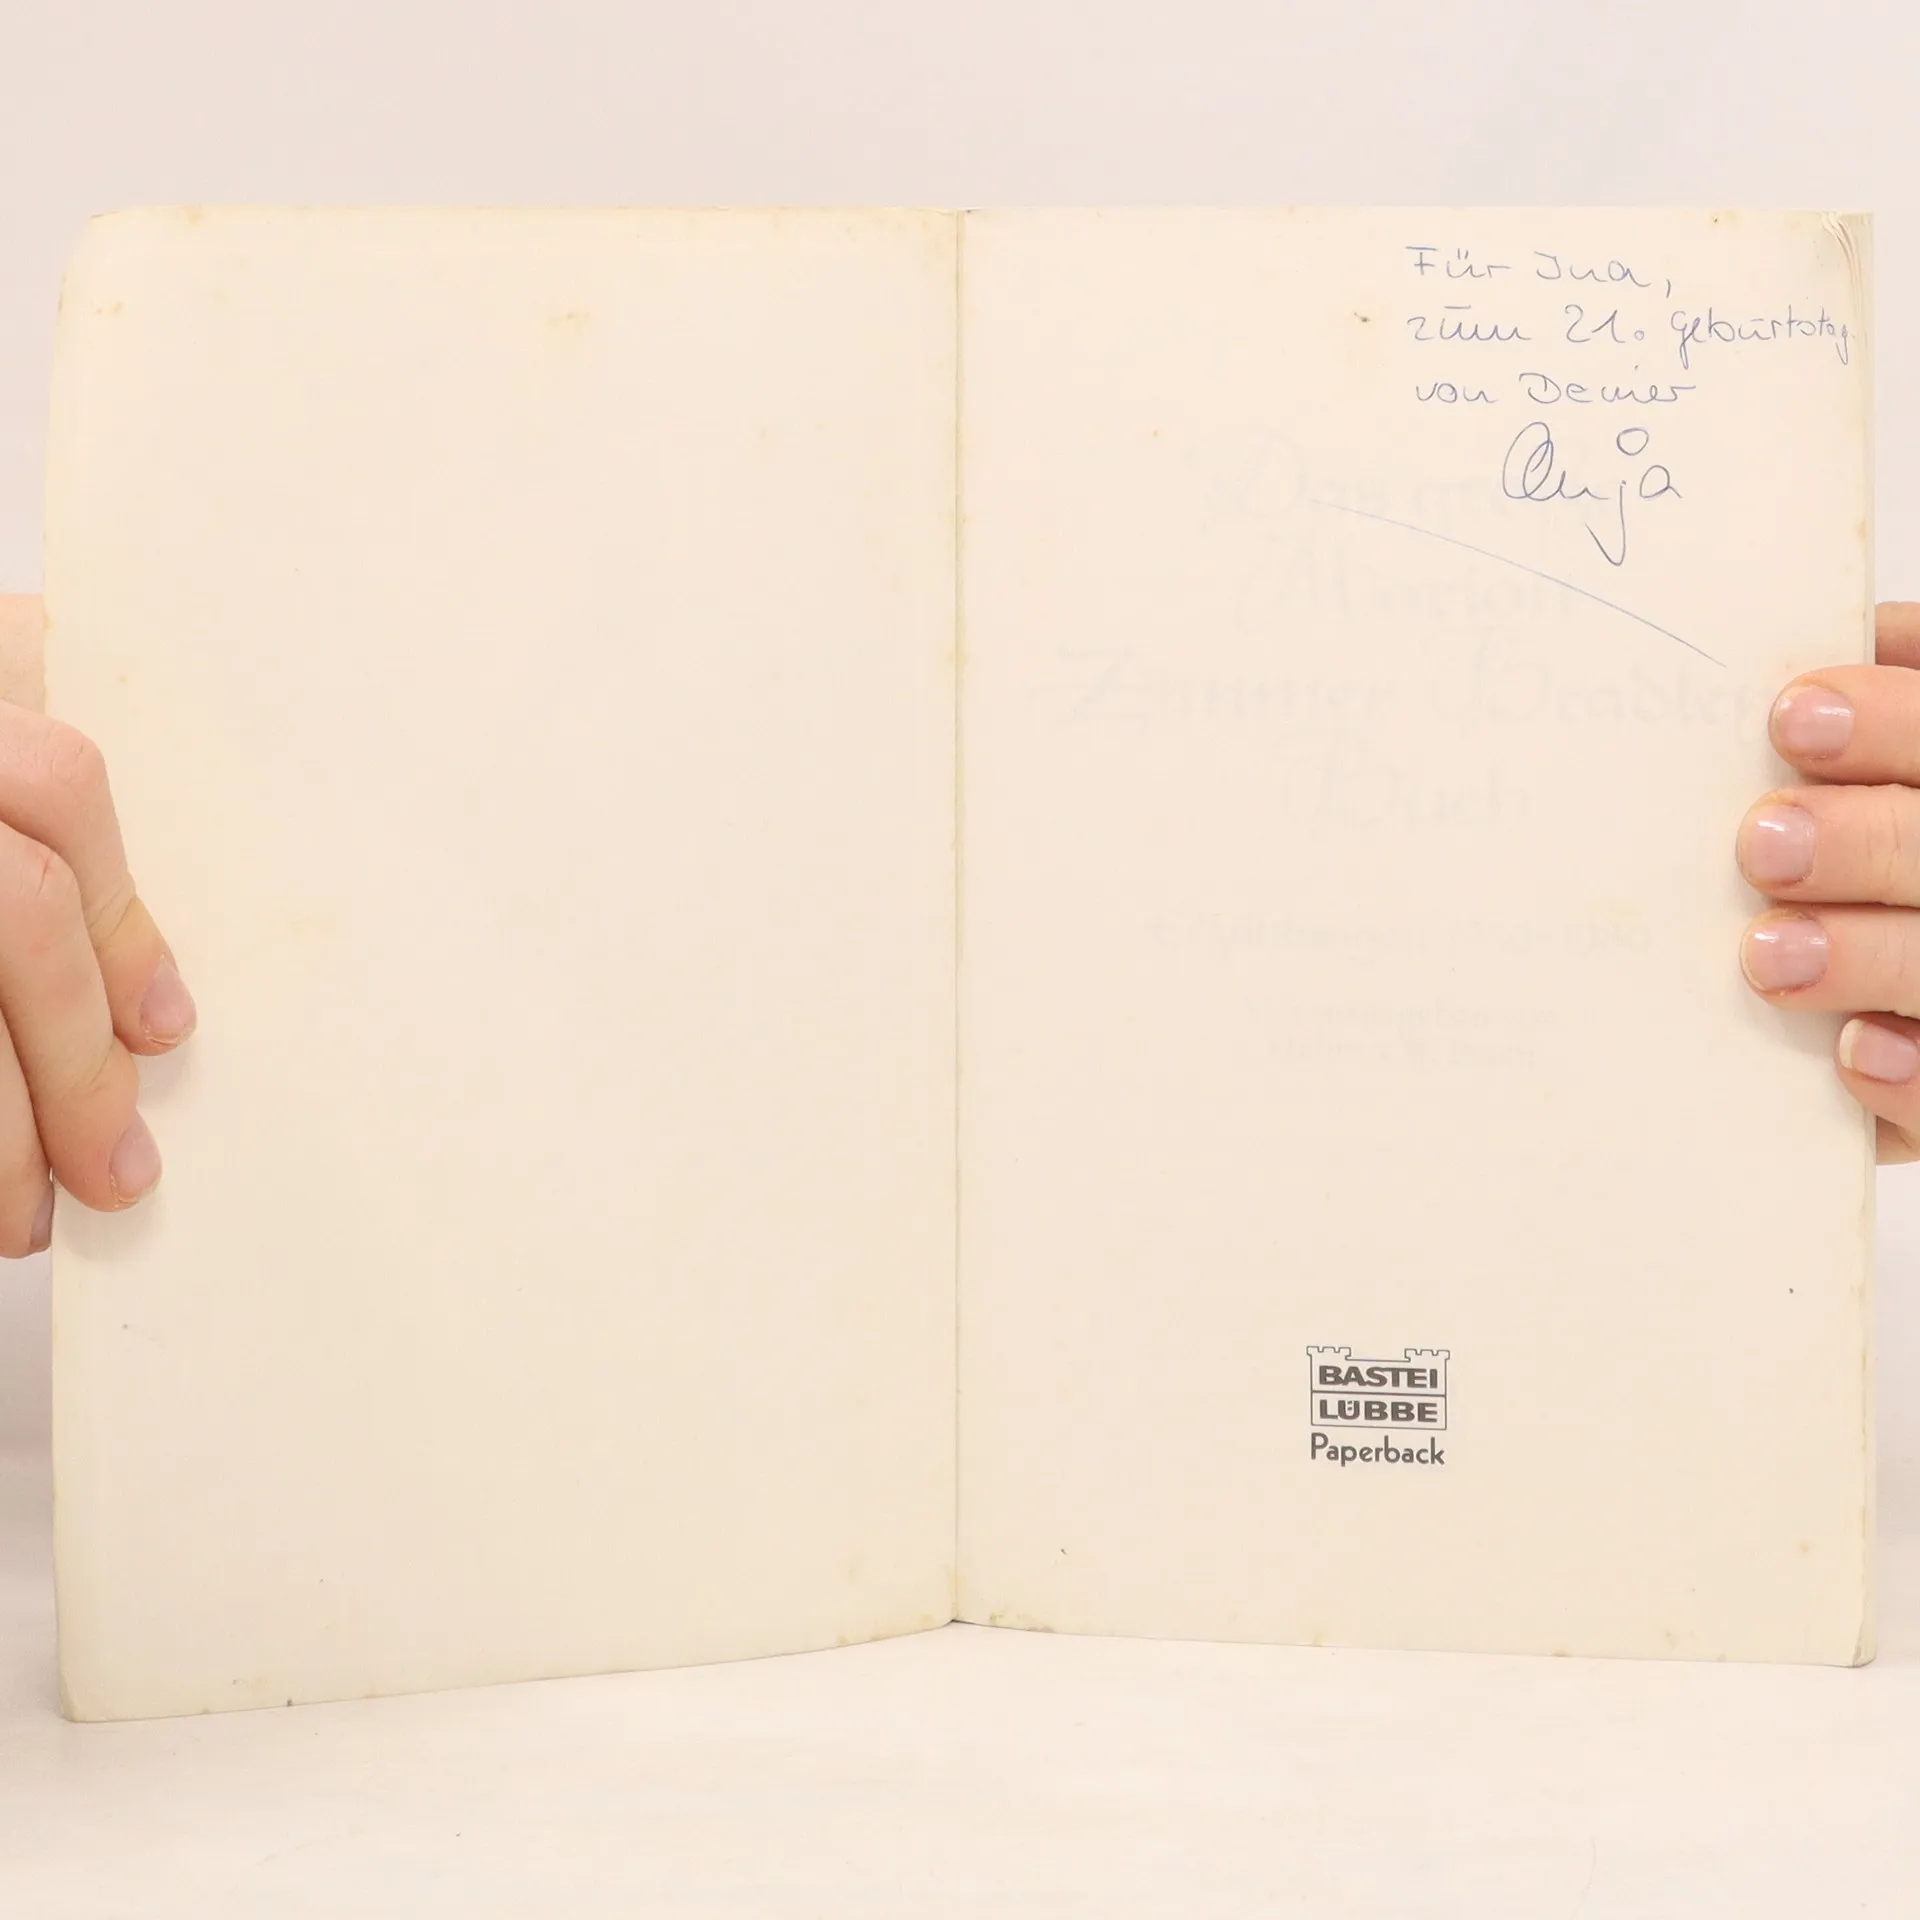 Für Ina,
zum 21. Geburtstag
von Deiner
Anja
Das große
Marion
Zimmer Bradley
Buch
BASTEI
LÜBBE
Paperback